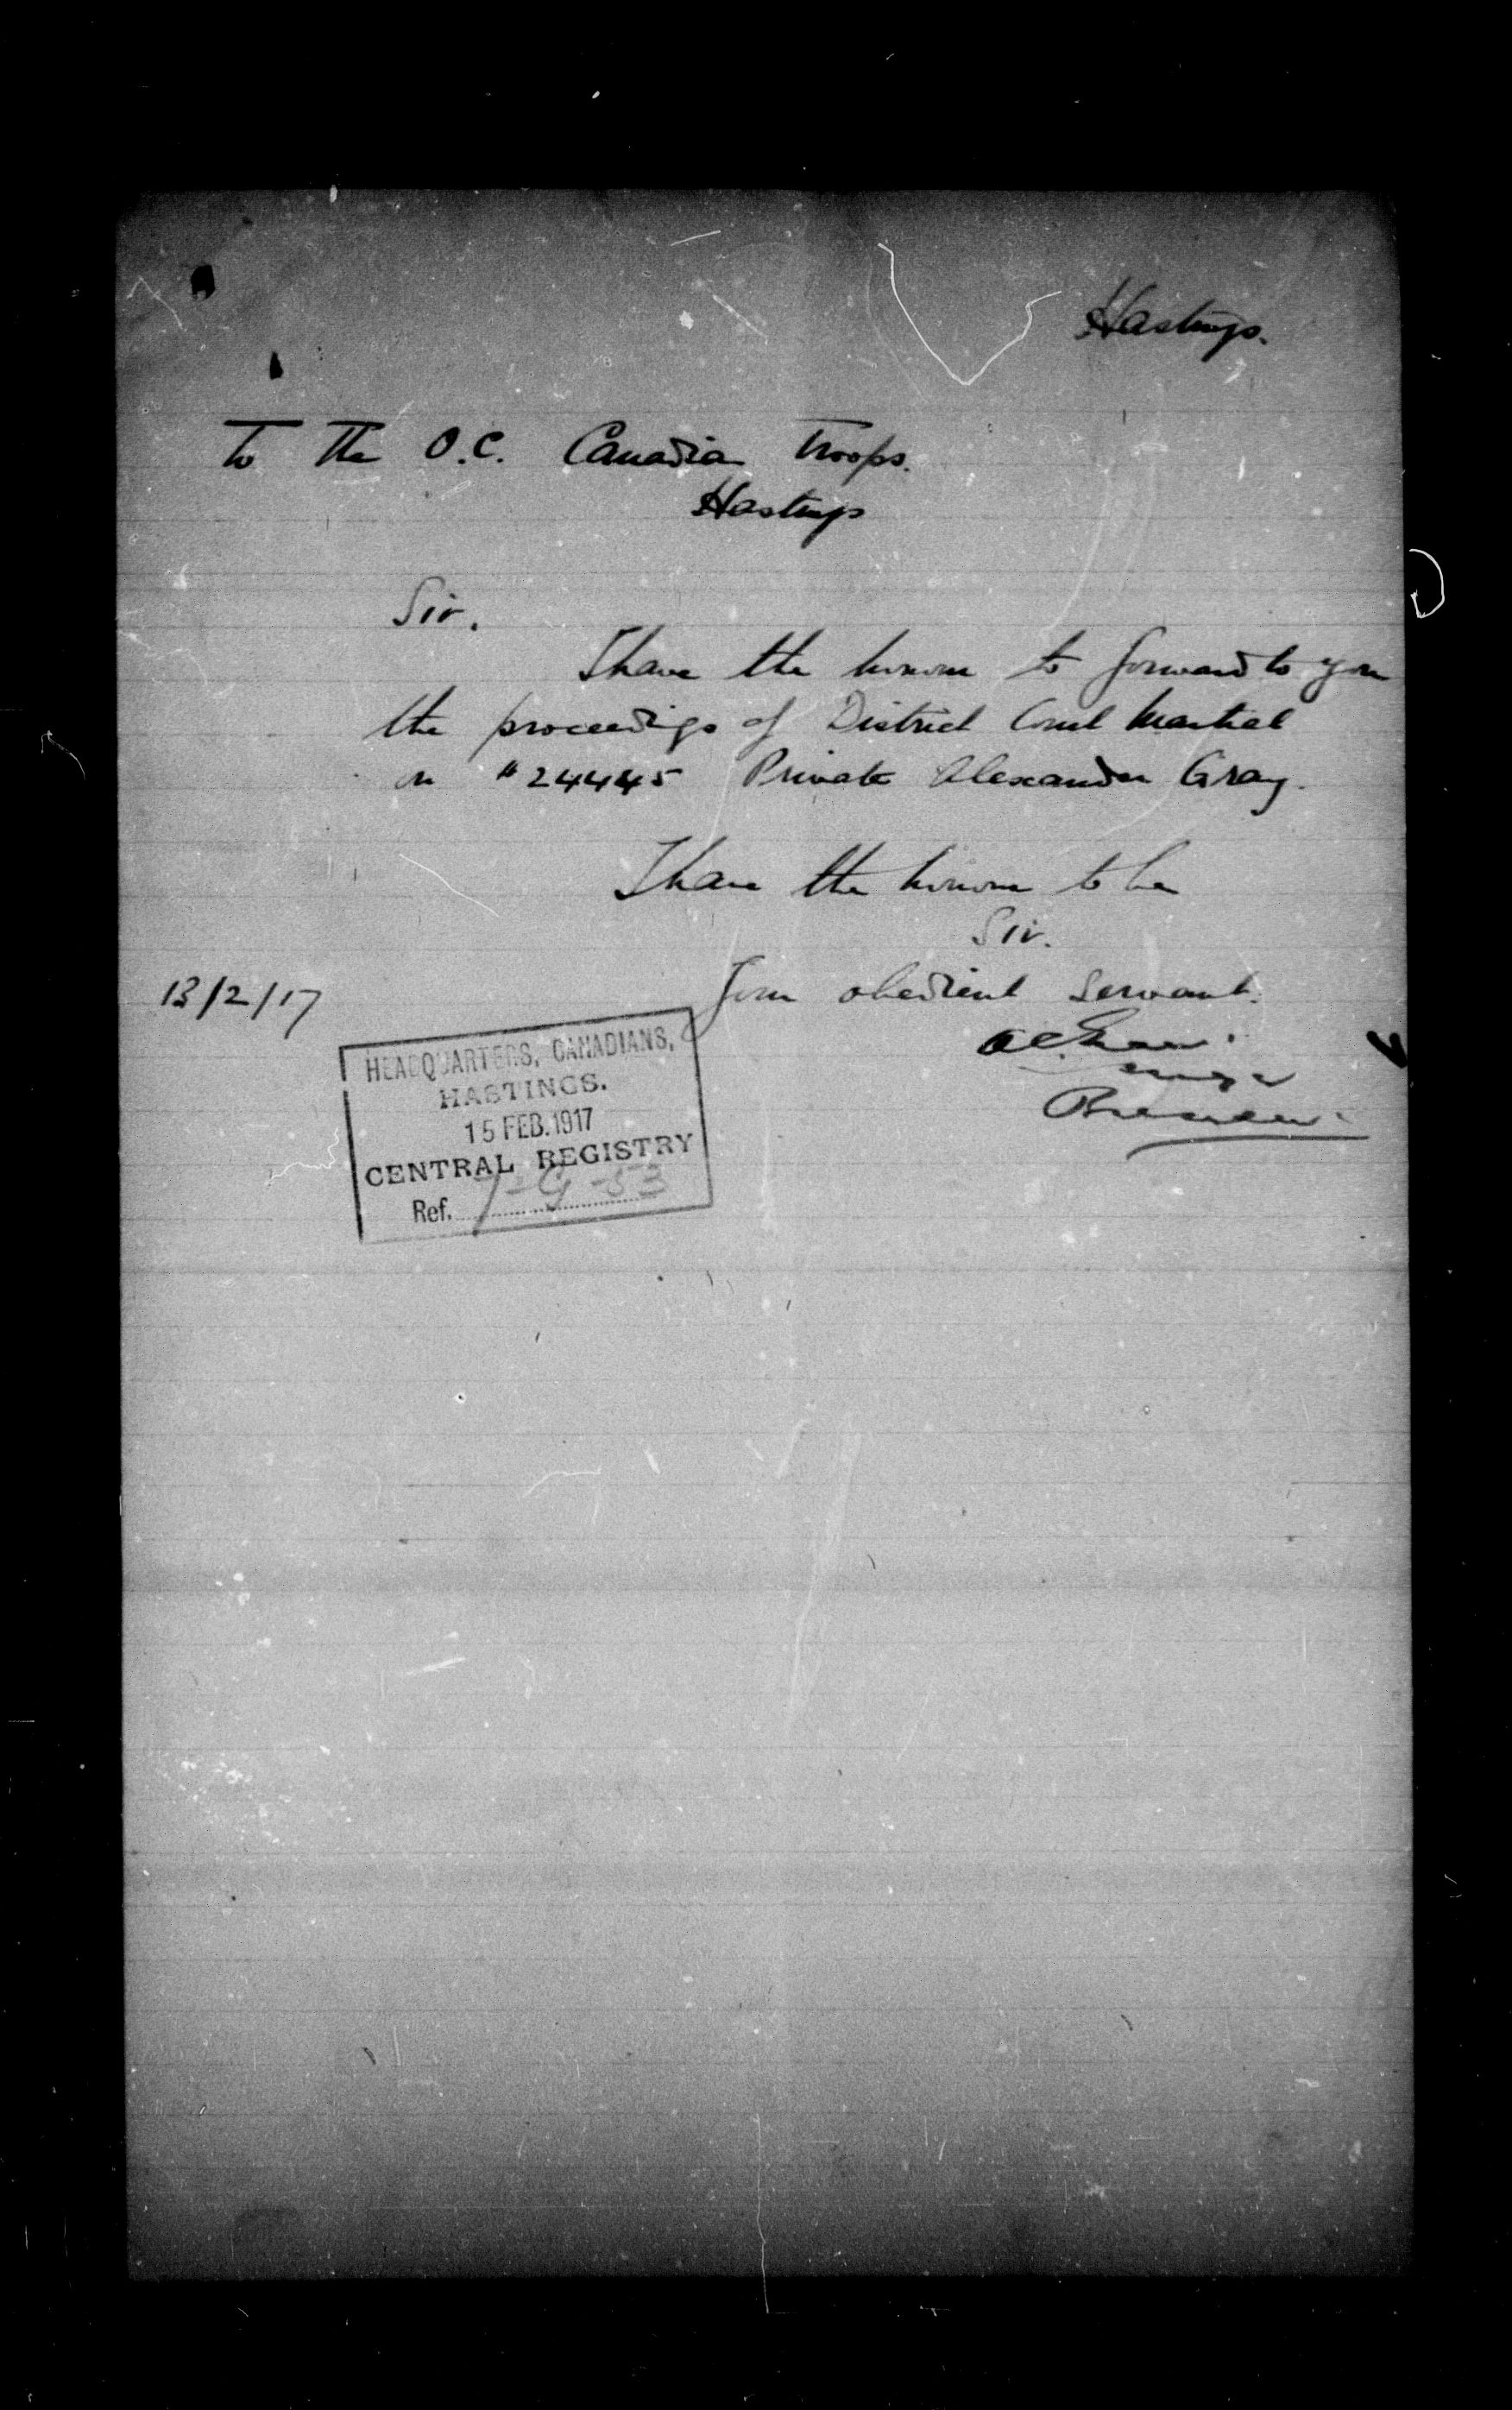 Hastings.
To the O.C. Canadian Troops.
Hastings
Sir.
I have the honour to forward to you
the proceedings of District Court Martial
on #24445 Private Alexander Gray.
I have the honour to be
Sir.
Your obedient servant.
13/2/17
Major
President
HEADQUARTERS, CANADIANS,
HASTINGS.
15 FEB. 1917
CENTRAL REGISTRY
Ref. 7-G-53